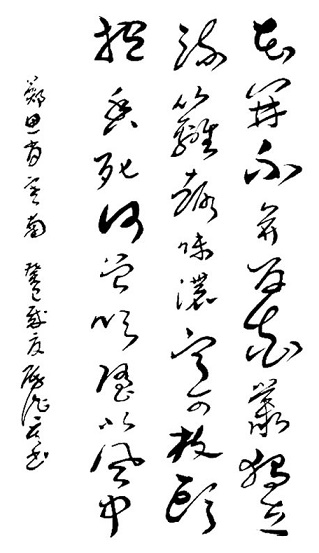 花開不并百花叢獨立
疏籬趣味濃寧可枝頭
抱香死何曾吹墮北風中
鄭思肖 菊 癸巳